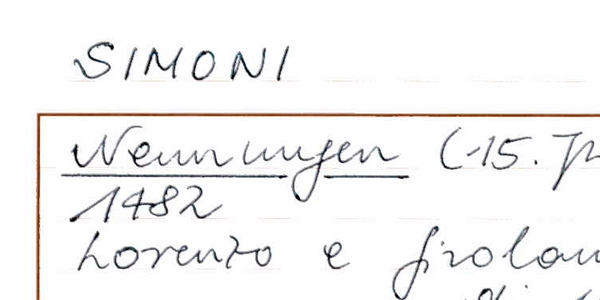 SIMONI
Nennungen (-15. Jh
1482
Lorenzo e